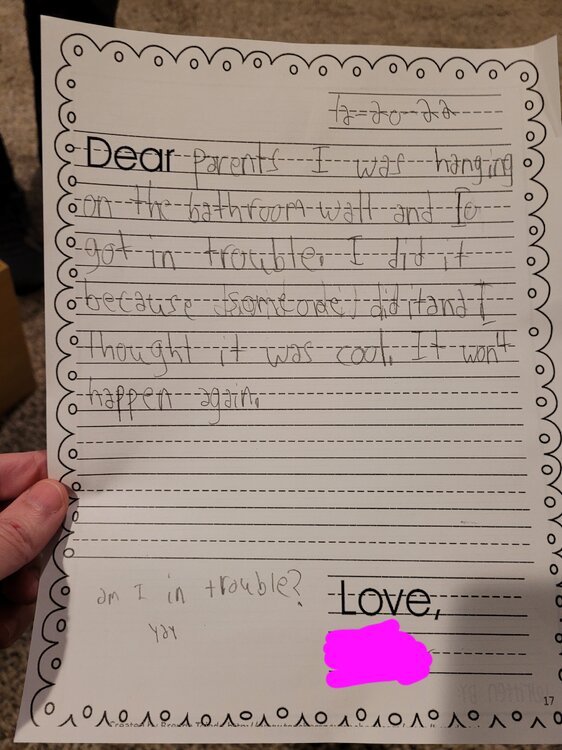 12-20-22
Dear parents I was hanging
on the bathroom wall and I
got in trouble. I did it
because someone did it and I
thought it was cool. It won't
happen again.
am I in trouble?
yay
Love,
17